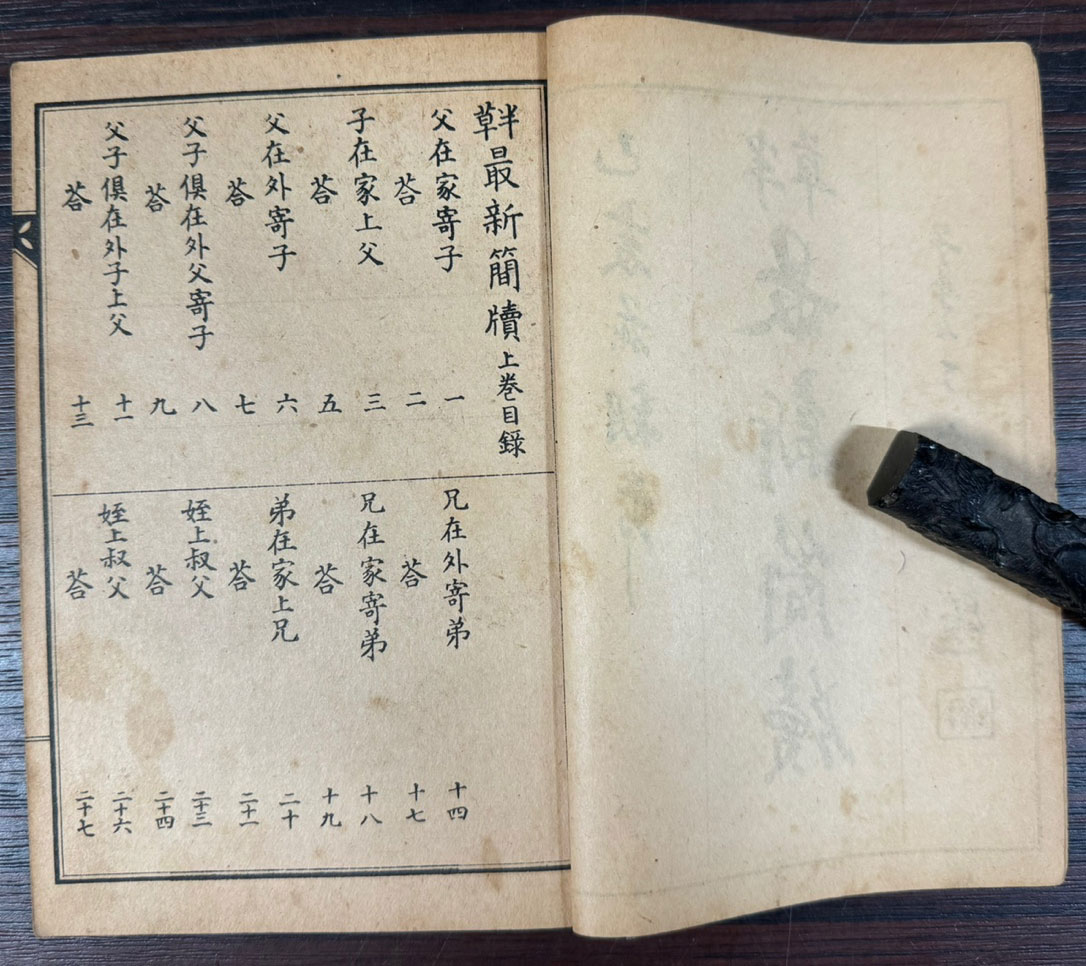 半草最新簡牘上巻目録
父在家寄子 一
荅 二
子在家上父 三
荅 五
父在外寄子 六
荅 七
父子俱在外父寄子 八
荅 九
父子俱在外子上父 十一
荅 十三
兄在外寄弟 十四
荅 十七
兄在家寄弟 十八
荅 十九
弟在家上兄 二十
荅 二十一
姪上叔父 二十三
荅 二十四
姪上叔父 二十六
荅 二十七